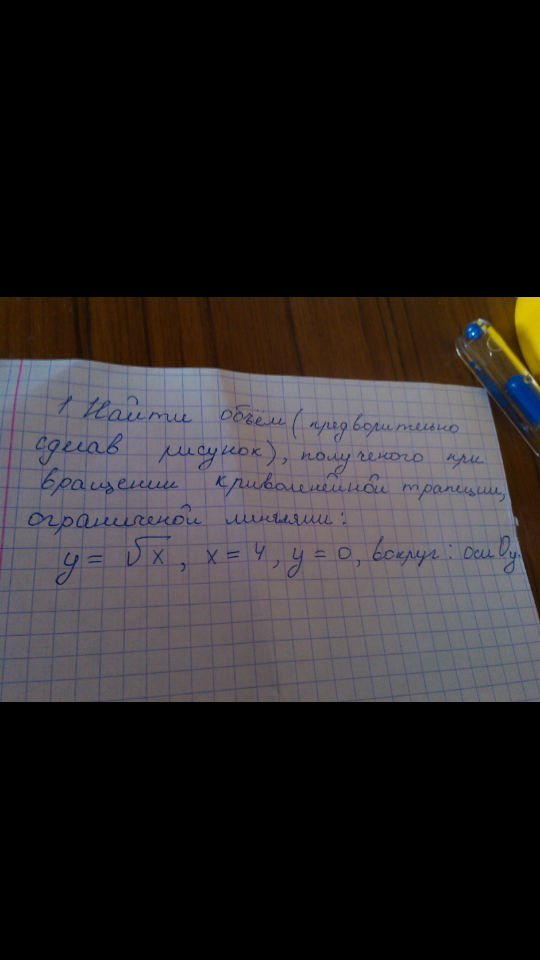 1 Найти объём (предворительно
сделав рисунок), полученого при
вращении криволенейной трапиции,
ограниченой линиями:
y = √x, x = 4, y = 0, вокруг: оси Oy.